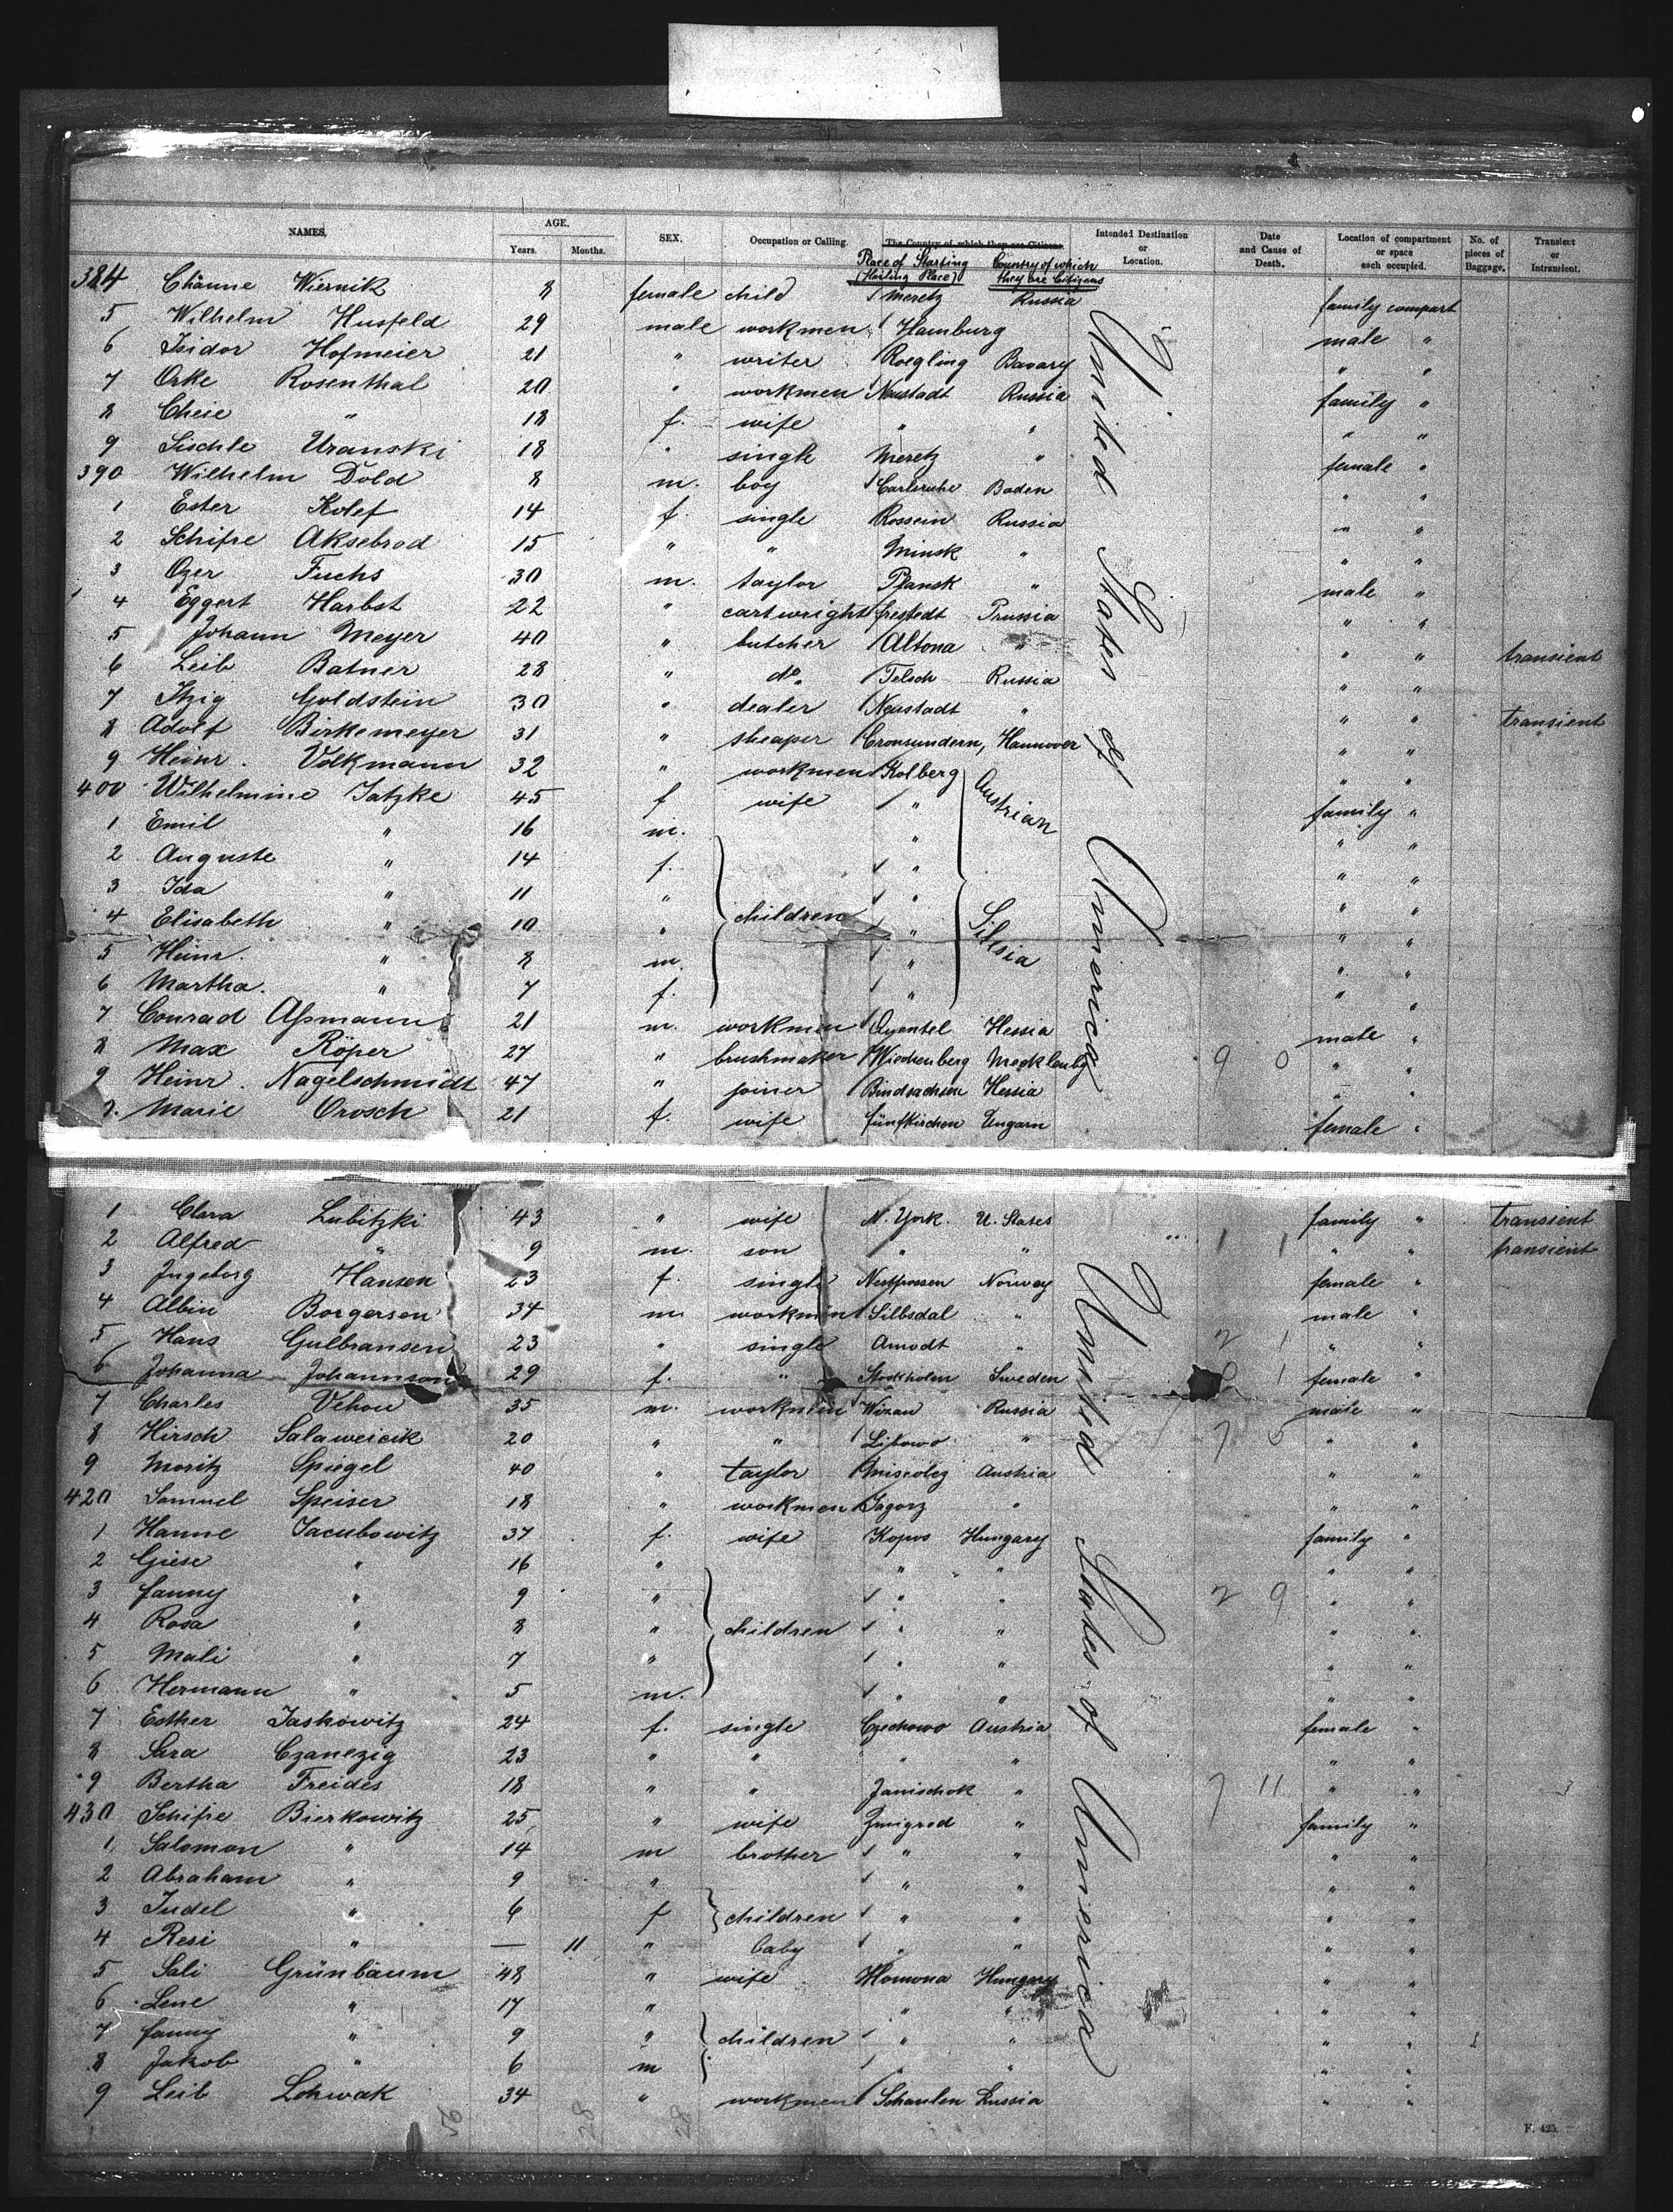 NAMES. AGE. SEX. Occupation or Calling. The Country of which they are Citizens. Intended Destination or Location. Date and Cause of Death. Location of compartment or space each occupied. No. of pieces of Baggage. Transient or Intransient.
Years. Months. Place of Starting (Hailing Place) Country of which they are Citizens
384 Chänne Wiernik 8 female child Meretz Russia family compart
5 Wilhelm Husfeld 29 male workmen Hamburg male "
6 Isidor Hofmeier 21 " writer Roegling Bavary " "
7 Orke Rosenthal 20 " workmen Neustadt Russia family "
8 Cheie " 18 f. wife " " " "
9 Lischle Uranski 18 " single Meretz " female "
390 Wilhelm Dold 8 m. boy Carlsruhe Baden " "
1 Ester Kolef 14 f. single Rossein Russia " "
2 Schifre Aksebrod 15 " " Minsk " " "
3 Ozer Fuchs 30 m. taylor Plansk " male "
4 Eggert Harbst 22 " cartwright frestedt Prussia " "
5 Johann Meyer 40 " butcher Altona " " " transient
6 Leib Batner 28 " do. Telsch Russia " "
7 Itzig Goldstein 30 " dealer Neustadt " " " transient
8 Adolf Birkemeyer 31 " sheaper Cronsundern, Hannover " "
9 Heinr. Volkmann 32 " workmen Kolberg " "
400 Wilhelmine Jatzke 45 f wife " Austrian Silesia family "
1 Emil " 16 m. " " "
2 Auguste " 14 f. " " "
3 Ida " 11 " " " "
4 Elisabeth " 10 " children " " "
5 Heinr. " 8 m. " " "
6 Martha. " 7 f. " " "
7 Conrad Aßmann 21 m. workmen Ayentel Hessia male "
8 Max Röper 27 " brushmaker Wieckenberg Mecklenbg 9 0 " "
9 Heinr. Nagelschmidt 47 " joiner Bindsachsen Hessia " "
Marie Orosch 21 f. wife fünfkirchen Ungarn female "
United States of America
1 Clara Lubitzki 43 " wife N. York. U. States family " transient
2 Alfred " 9 m. son " " 1 1 " " transient
3 Ingeborg Hansen 23 f. single Norway female "
4 Albin Borgersen 34 m. workmen Silbsdal " male "
5 Hans Gulbransen 23 " single Amodt " 2 1 " "
6 Johanna Johannson 29 f. " Stockholm Sweden 1 female "
7 Charles Vehou 35 m. workmen Wizau Russia male "
8 Hirsch Salaweicik 20 " " Libowo " 7 5 " "
9 Moritz Spiegel 40 " taylor Miscolcz Austria " "
420 Samuel Speiser 18 " workmen Sagorz " " "
1 Hanne Jacubowitz 37 f. wife Kopos Hungary family "
2 Giese " 16 " " " " "
3 fanny " 9 " " " 2 9 " "
4 Rosa " 8 " children " " " "
5 Mali " 7 " " " " "
6 Hermann " 5 m. " " " "
7 Esther Jaskowitz 24 f. single Czechowo Austria female "
8 Sara Czanezig 23 " " " " " "
9 Bertha Freides 18 " " Janischok " 7 11 " " 3
430 Schifre Bierkowitz 25 " wife Zmigrod " family "
1 Salomon " 14 m brother " " " "
2 Abraham " 9 " " " " "
3 Judel " 6 f children " " " "
4 Resi " — 11 " baby " " " "
5 Sali Grünbaum 48 " wife Homona Hungary " "
6 Lene " 17 " " " " "
7 fanny " 9 " children " " " "
8 Jakob " 6 m " " " "
9 Leib Lohwak 34 " workmen Schaulen Russia " "
United States of America
56 28 28
F. 425.